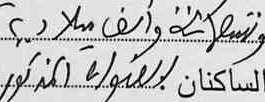 وتسعمائة وألف ميلادية
الساكنان بالعنوان المذكور